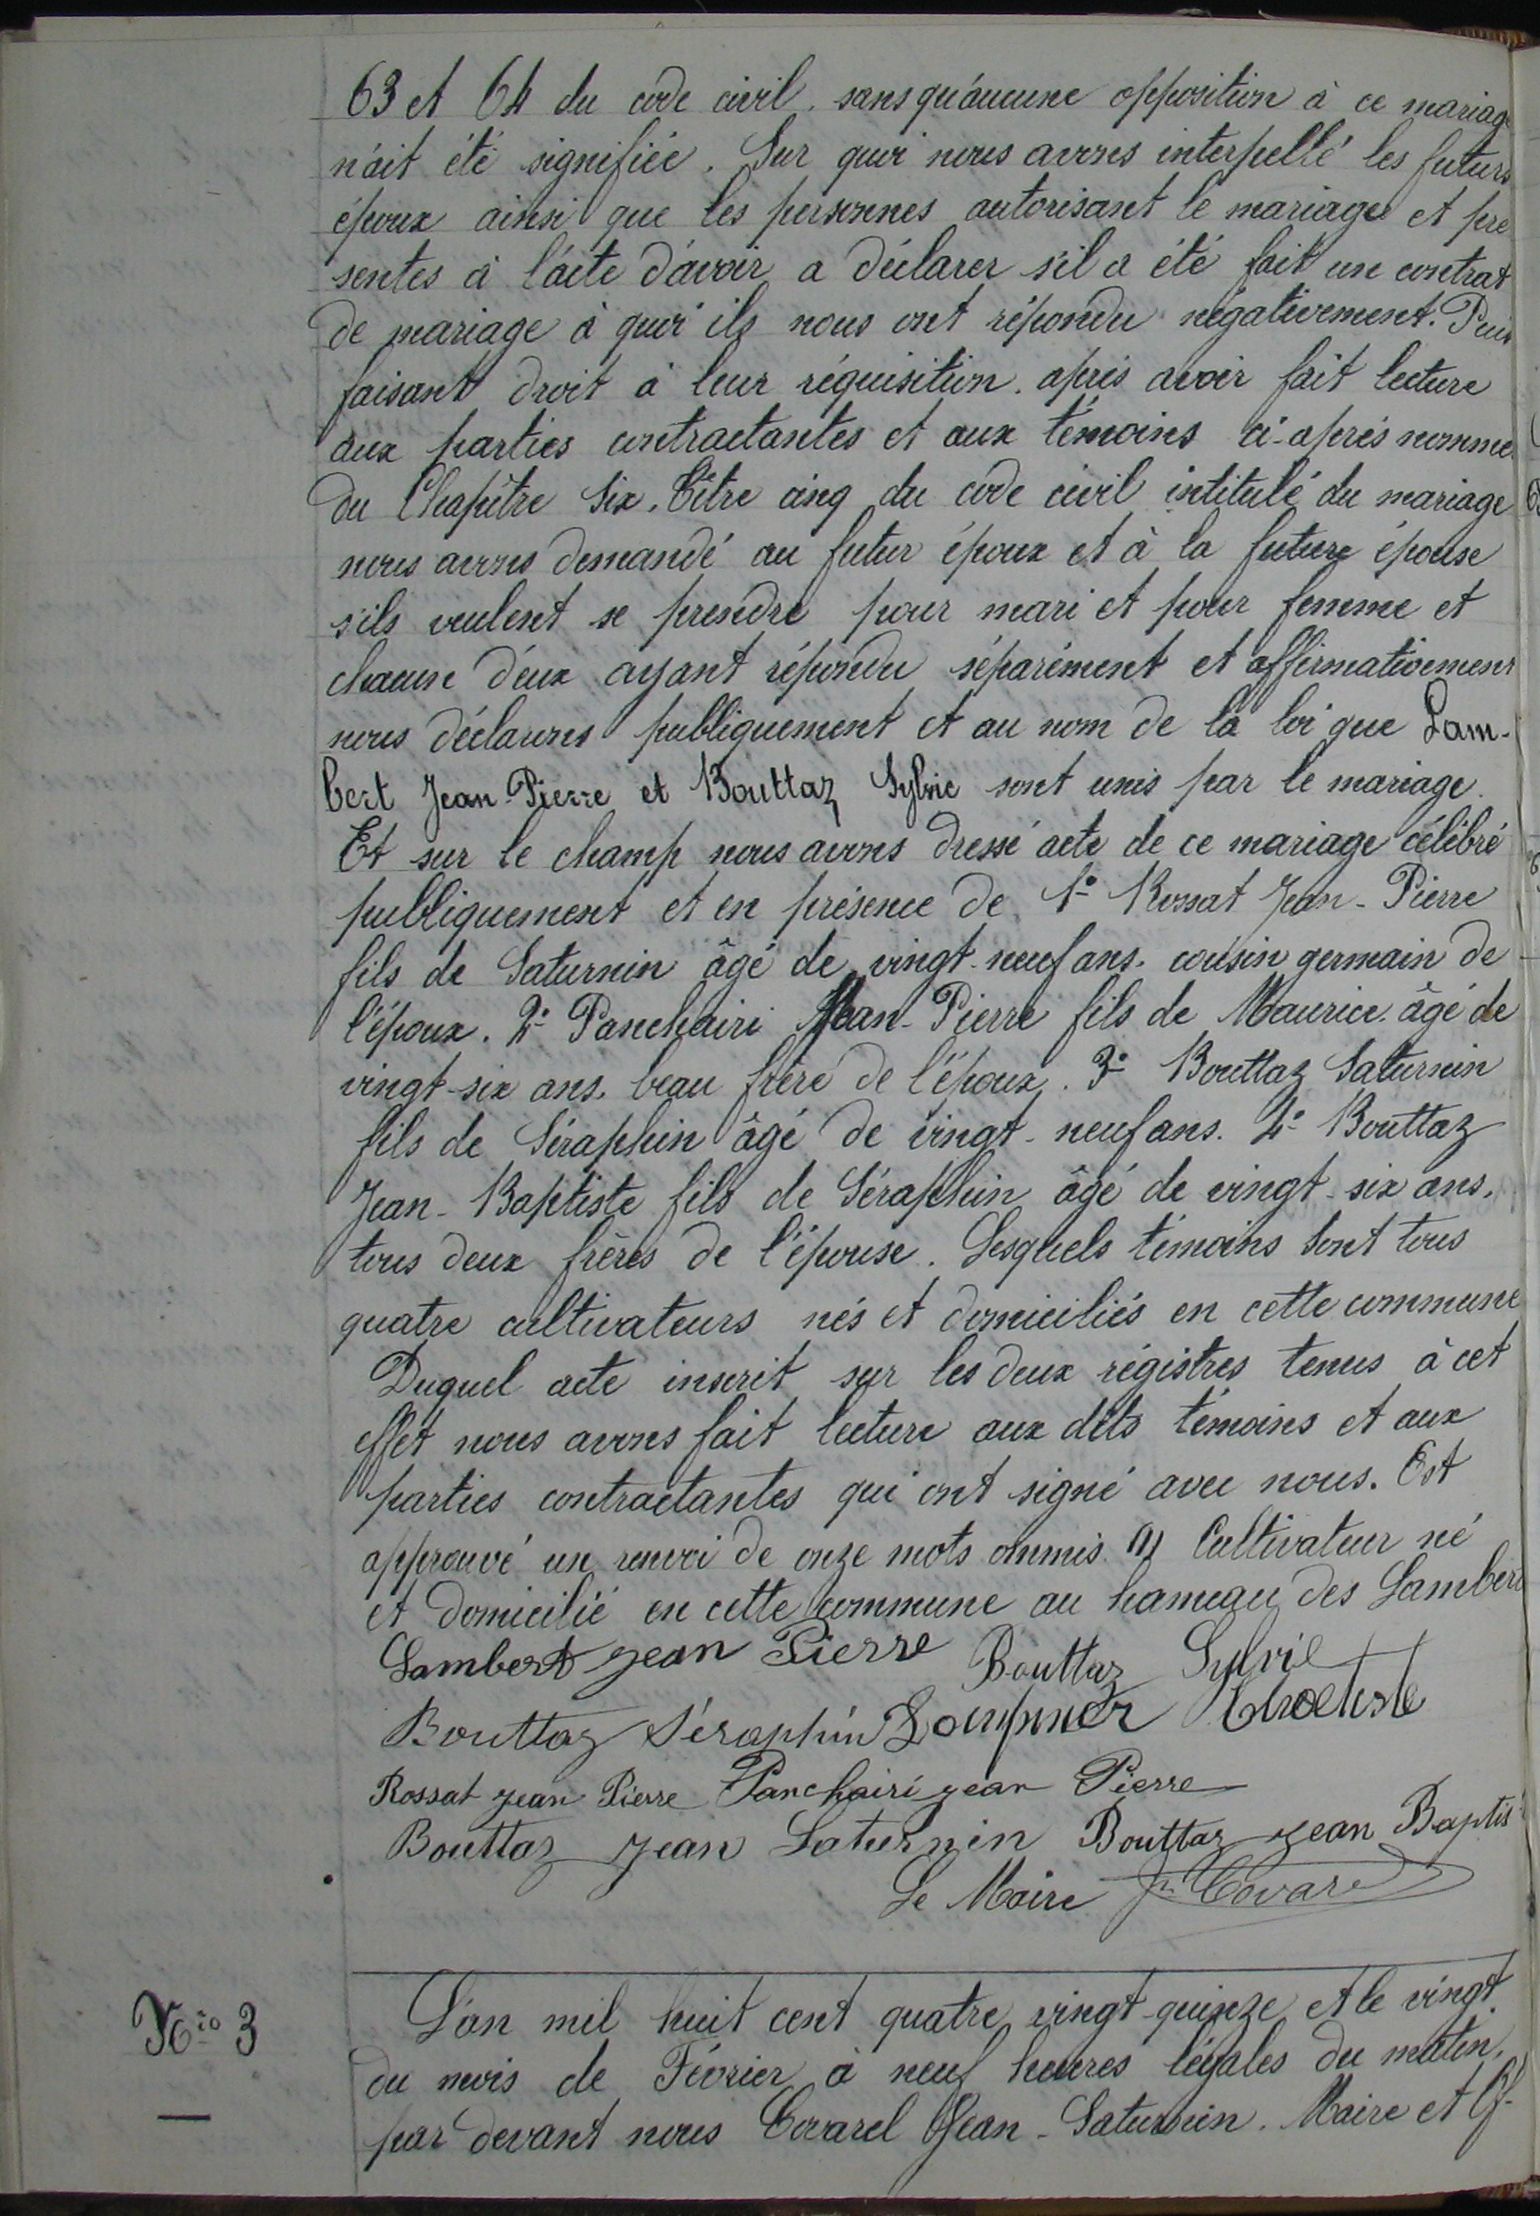 63 et 64 du code civil. sans qu'aucune opposition à ce mariage
n'ait été signifiée. Sur quoi nous avons interpellé les futurs
époux ainsi que les personnes autorisant le mariage et pré
sentes à l'acte d'avoir a déclarer s'il a été fait un contrat
de mariage à quoi ils nous ont répondu négativement. Puis
faisant droit à leur réquisition. après avoir fait lecture
aux parties contractantes et aux témoins ci-après nommé
du Chapitre six. titre cinq du code civil intitulé du mariage
nous avons demandé au futur époux et à la future épouse
s'ils veulent se prendre pour mari et pour femme et
chacun d'eux ayant répondu séparément et affirmativement
nous déclarons publiquement et au nom de la loi que Lam-
bert Jean-Pierre et Bouttaz Sylvie sont unis par le mariage.
Et sur le champ nous avons dressé acte de ce mariage célébré
publiquement et en présence de 1° Rossat Jean-Pierre
fils de Saturnin âgé de vingt-neuf ans. cousin germain de
l'époux. 2° Panchairi Jean-Pierre fils de Maurice. âgé de
vingt-six ans. beau frère de l'époux. 3° Bouttaz Saturnin
fils de Séraphin âgé de vingt-neuf ans. 4° Bouttaz
Jean-Baptiste fils de Séraphin âgé de vingt-six ans.
tous deux frères de l'épouse. Lesquels témoins sont tous
quatre cultivateurs nés et domiciliés en cette commune
Duquel acte inscrit sur les deux régistres tenus à cet
effet nous avons fait lecture aux dits témoins et aux
parties contractantes qui ont signé avec nous. Est
approuvé un renvoi de onze mots ommis (1) Cultivateur né
et domicilié en cette commune au hameau des Lambert
Lambert Jean Pierre Bouttaz Sylvie
Bouttaz Séraphin
Rossat Jean Pierre Panchairi jean Pierre
Bouttaz Jean Saturnin Bouttaz jean Baptis
Le Maire Jn Covarel
N° 3
L'an mil huit cent quatre vingt-quinze et le vingt
du mois de Février à neuf heures légales du matin.
par devant nous Covarel Jean-Saturnin. Maire et Of-